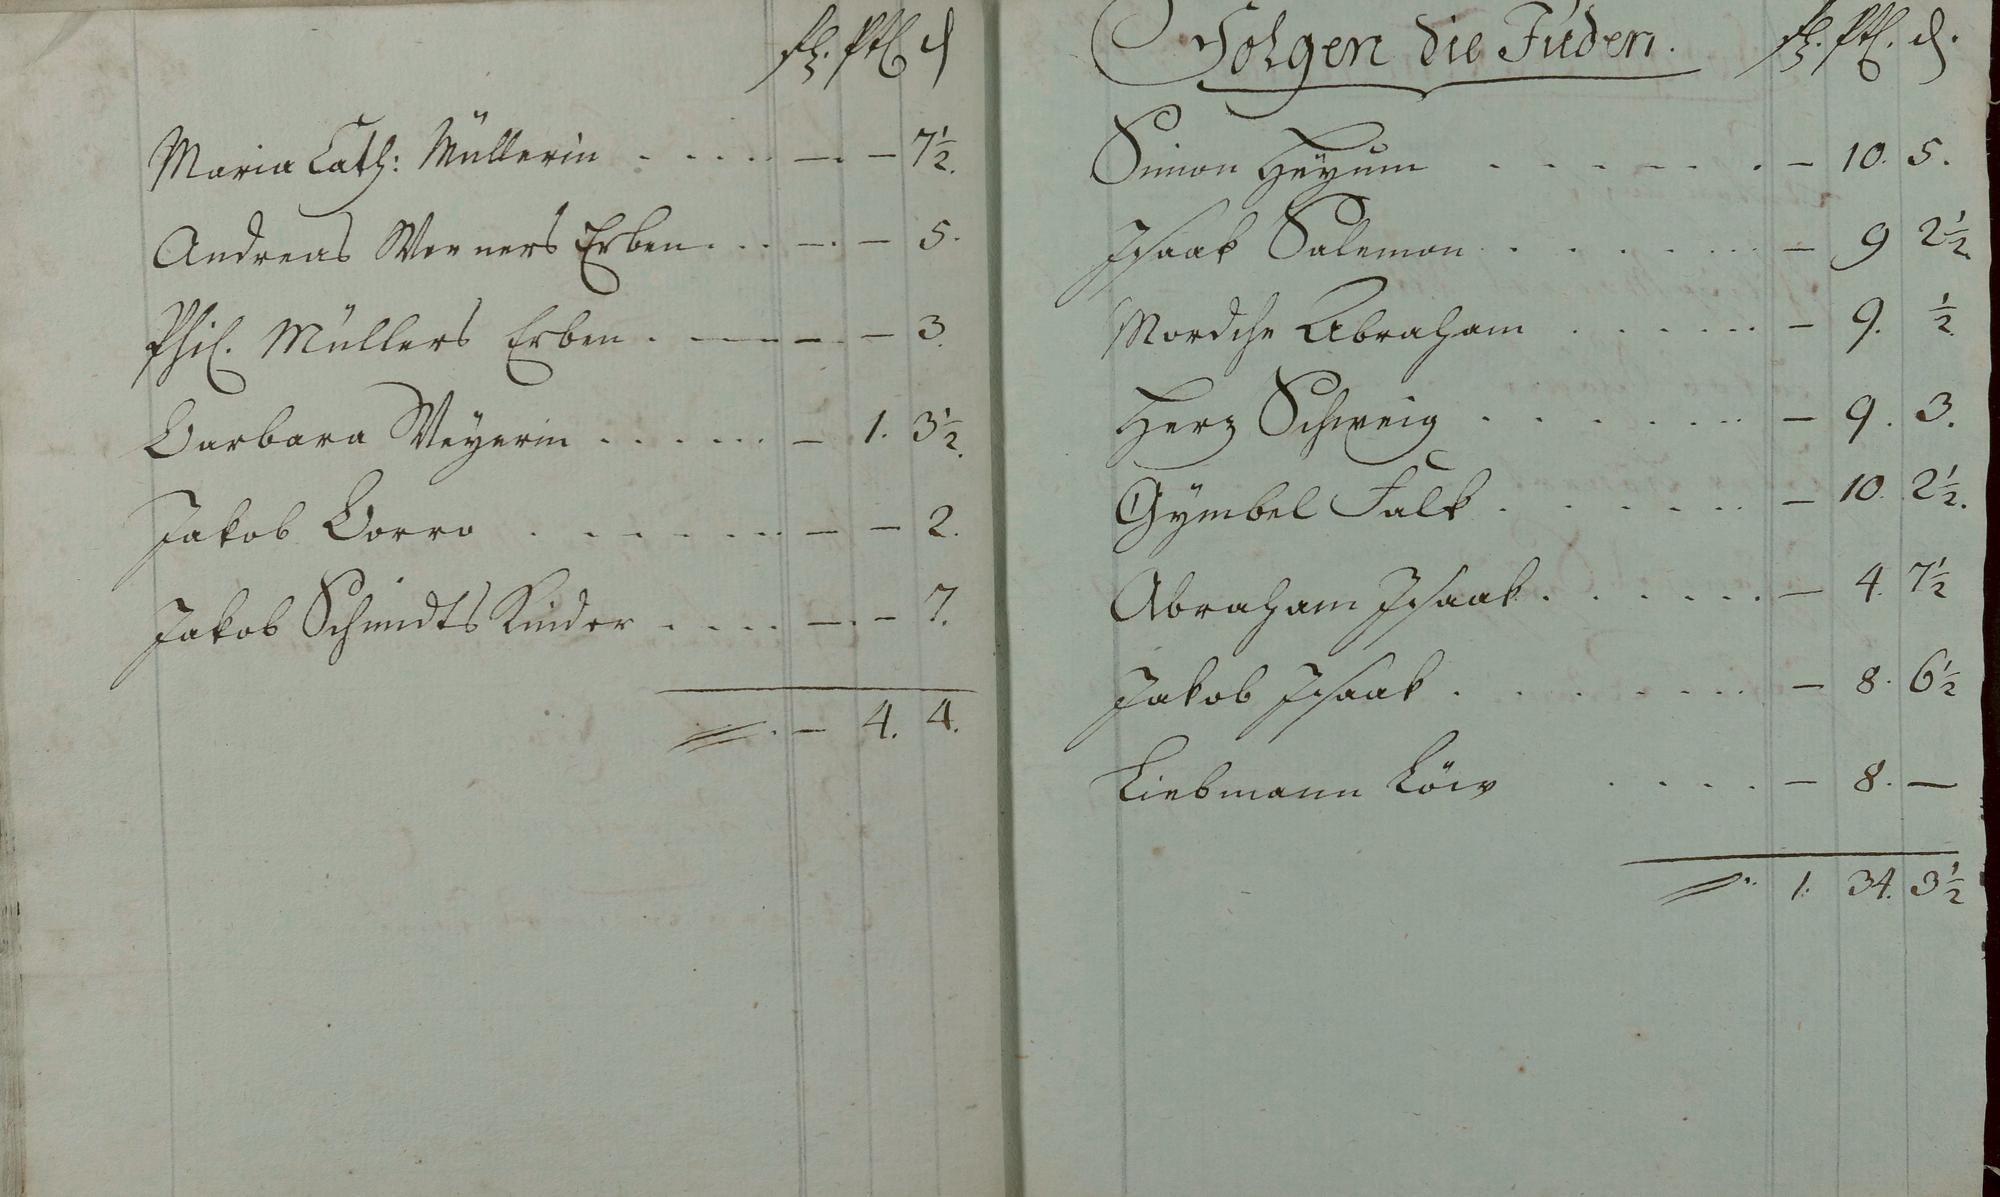 fl. Btz. d
Maria Cath: Müllerin . . . . . — . — 7½.
Andreas Werners Erben . . . — . — 5.
Phil. Müllers Erben . — — — — — 3.
Barbara Meyerin . . . . . . — 1. 3½.
Jakob Borro . . . . . . . — — 2.
Jakob Schmidts Kinder . . . . — . — 7.
. — 4. 4.
Folgen die Juden. fl. Btz. d.
Simon Heyum . . . . . . . — 10. 5.
Isaak Salemon . . . . . . — 9 2½.
Mordche Abraham . . . . . . — 9. ½
Herz Schweig . . . . . . . — 9. 3.
Gÿmbel Falk . . . . . . — 10. 2½.
Abraham Isaak . . . . . . . — 4. 7½
Jakob Isaak . . . . . . . — 8. 6½
Liebmann Löw . . . . — 8. —
1. 34. 3½